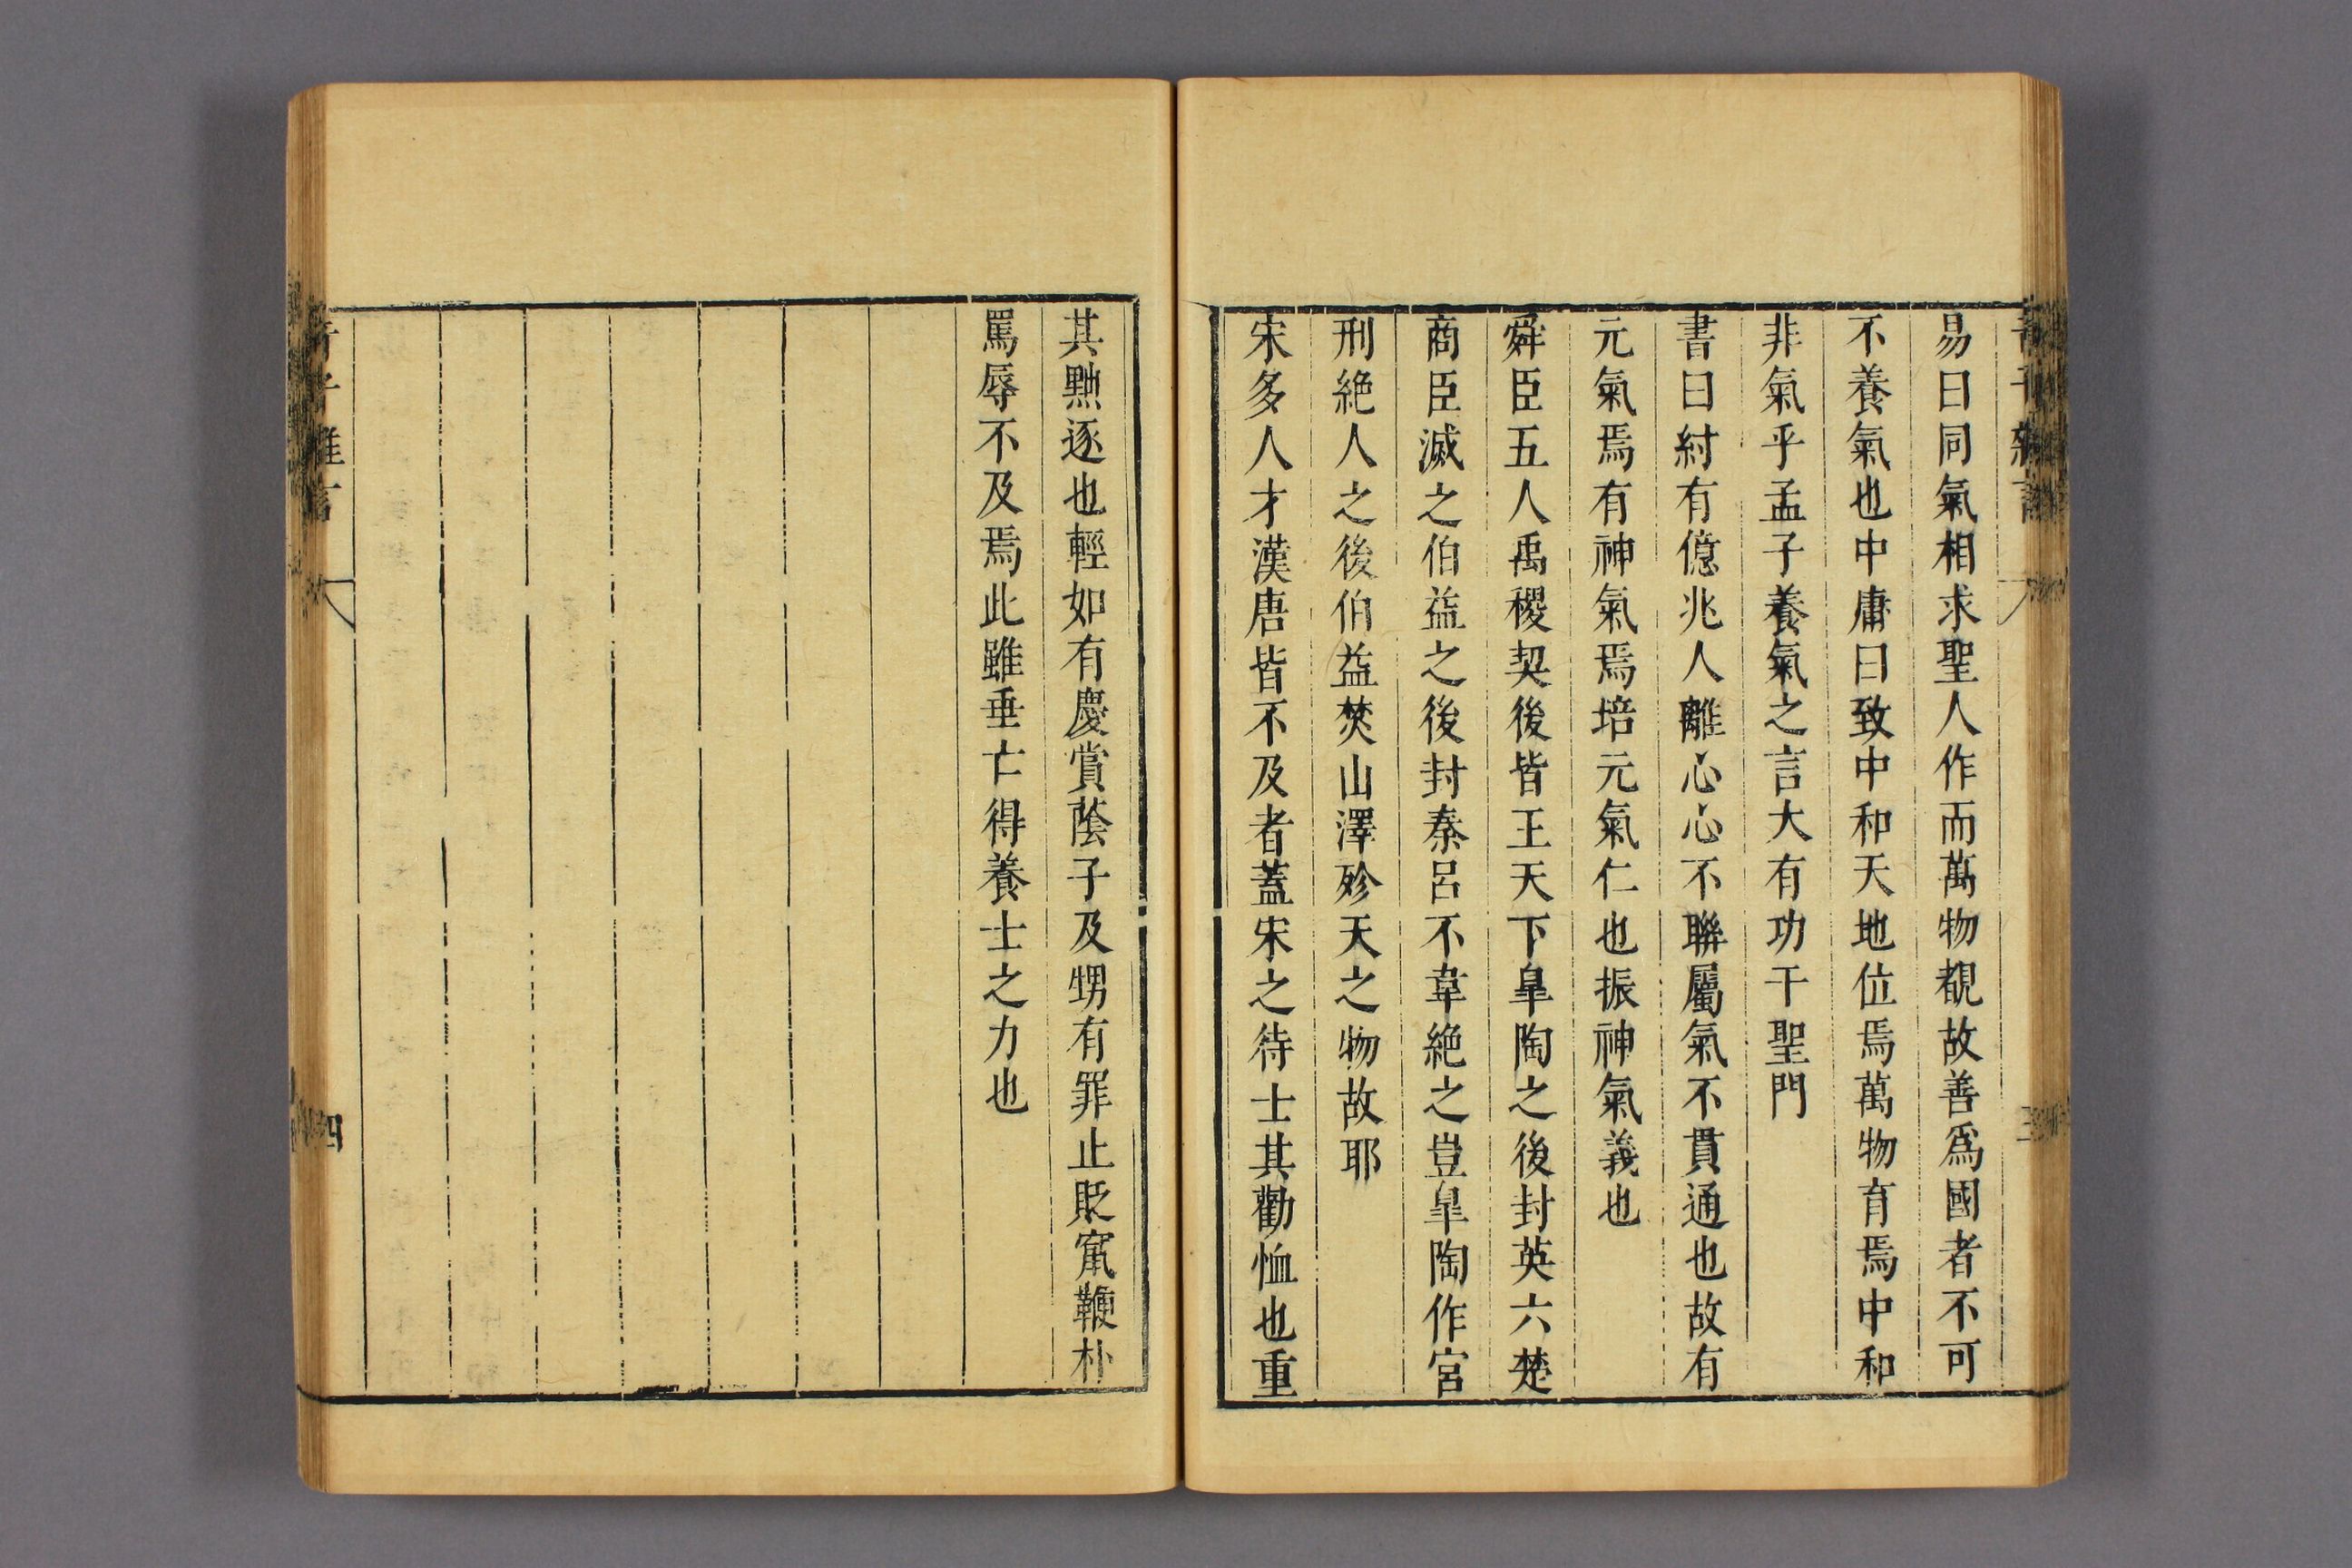 易曰同氣相求聖人作而萬物覩故善爲國者不可
不養氣也中庸曰致中和天地位焉萬物育焉中和
非氣乎孟子養氣之言大有功干聖門
書曰紂有億兆人離心心不聯屬氣不貫通也故有
元氣焉有神氣焉培元氣仁也振神氣義也
舜臣五人禹稷契後皆王天下皐陶之後封英六楚
商臣滅之伯益之後封秦呂不韋絶之豈皐陶作宮
刑絶人之後伯益焚山澤殄天之物故耶
宋多人才漢唐皆不及者蓋宋之待士其勸恤也重
其黜逐也輕如有慶賞蔭子及甥有罪止貶竄鞭朴
罵辱不及焉此雖垂亡得養士之力也
四